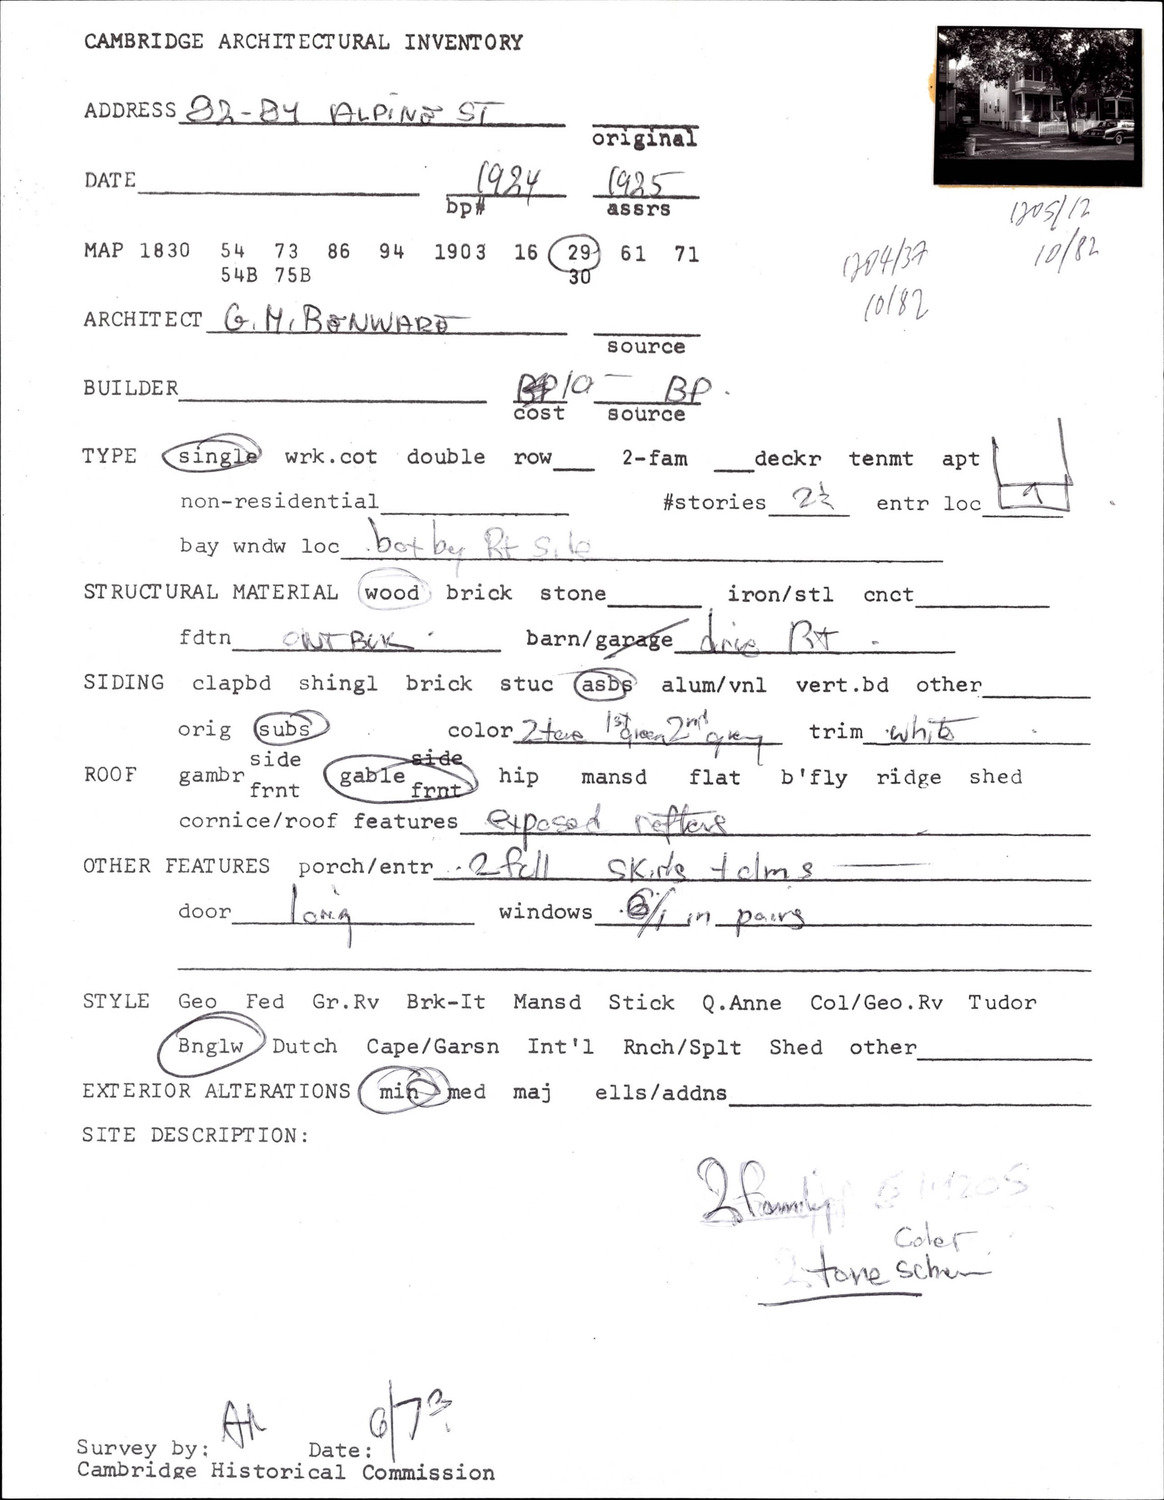 CAMBRIDGE ARCHITECTURAL INVENTORY
ADDRESS 82-84 ALPINE ST
original
DATE 1924 1925
bp# assrs
1205/12
10/82
MAP 1830 54 73 86 94 1903 16 29 61 71
54B 75B 30
1204/37
10/82
ARCHITECT G.H. BENWARE
source
BUILDER BP/ BP.
cost source
TYPE single wrk.cot double row 2-fam deckr tenmt apt
non-residential #stories 2½ entr loc
bay wndw loc Rt Side
STRUCTURAL MATERIAL wood brick stone iron/stl cnct
fdtn CNT BLK barn/garage drive Rt
SIDING clapbd shingl brick stuc asbs alum/vnl vert.bd other
orig subs color 2 tone 1st green 2nd grey trim white
side side
ROOF gambr gable hip mansd flat b'fly ridge shed
frnt frnt
cornice/roof features exposed rafters
OTHER FEATURES porch/entr 2 full
door long windows 6/1 in pairs
STYLE Geo Fed Gr.Rv Brk-It Mansd Stick Q.Anne Col/Geo.Rv Tudor
Bnglw Dutch Cape/Garsn Int'l Rnch/Splt Shed other
EXTERIOR ALTERATIONS min med maj ells/addns
SITE DESCRIPTION:
2 family
Color
2 tone
6/73
Survey by: Date:
Cambridge Historical Commission